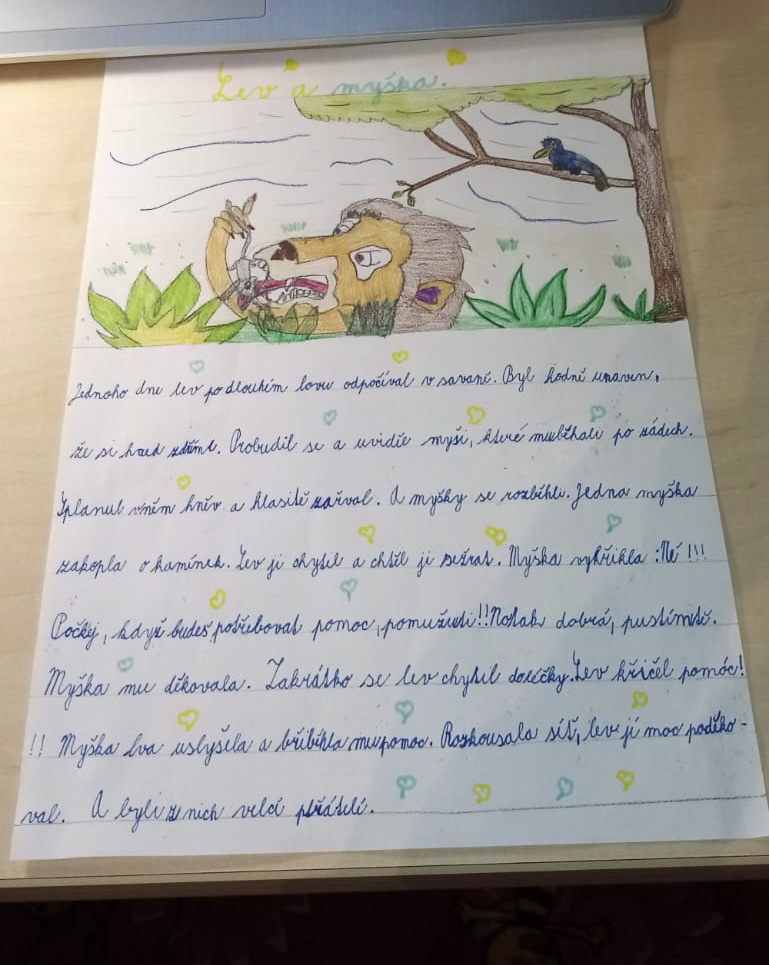 Lev a myška.
Jednoho dne lev po dlouhém lovu odpočíval v savaně. Byl hodně unaven,
že si hned zdříml. Probudil se a uviděl myši, které mu běhali po zádech.
Vplanul v něm hněv a hlasitě zařval. A myšky se rozběhli. Jedna myška
zakopla o kamínek. Lev ji chytil a chtěl ji sežrat. Myška vykřikla : Né !!!
Počkej, když budeš potřebovat pomoc, pomužu ti!! No tak dobrá, pustím tě.
Myška mu děkovala. Zakrátko se lev chytil do léčky. Lev křičel pomóc!
!! Myška lva uslyšela a přiběhla mu pomoc. Rozkousala síť, lev jí moc poděko-
val. A byli z nich velcí přátelé.